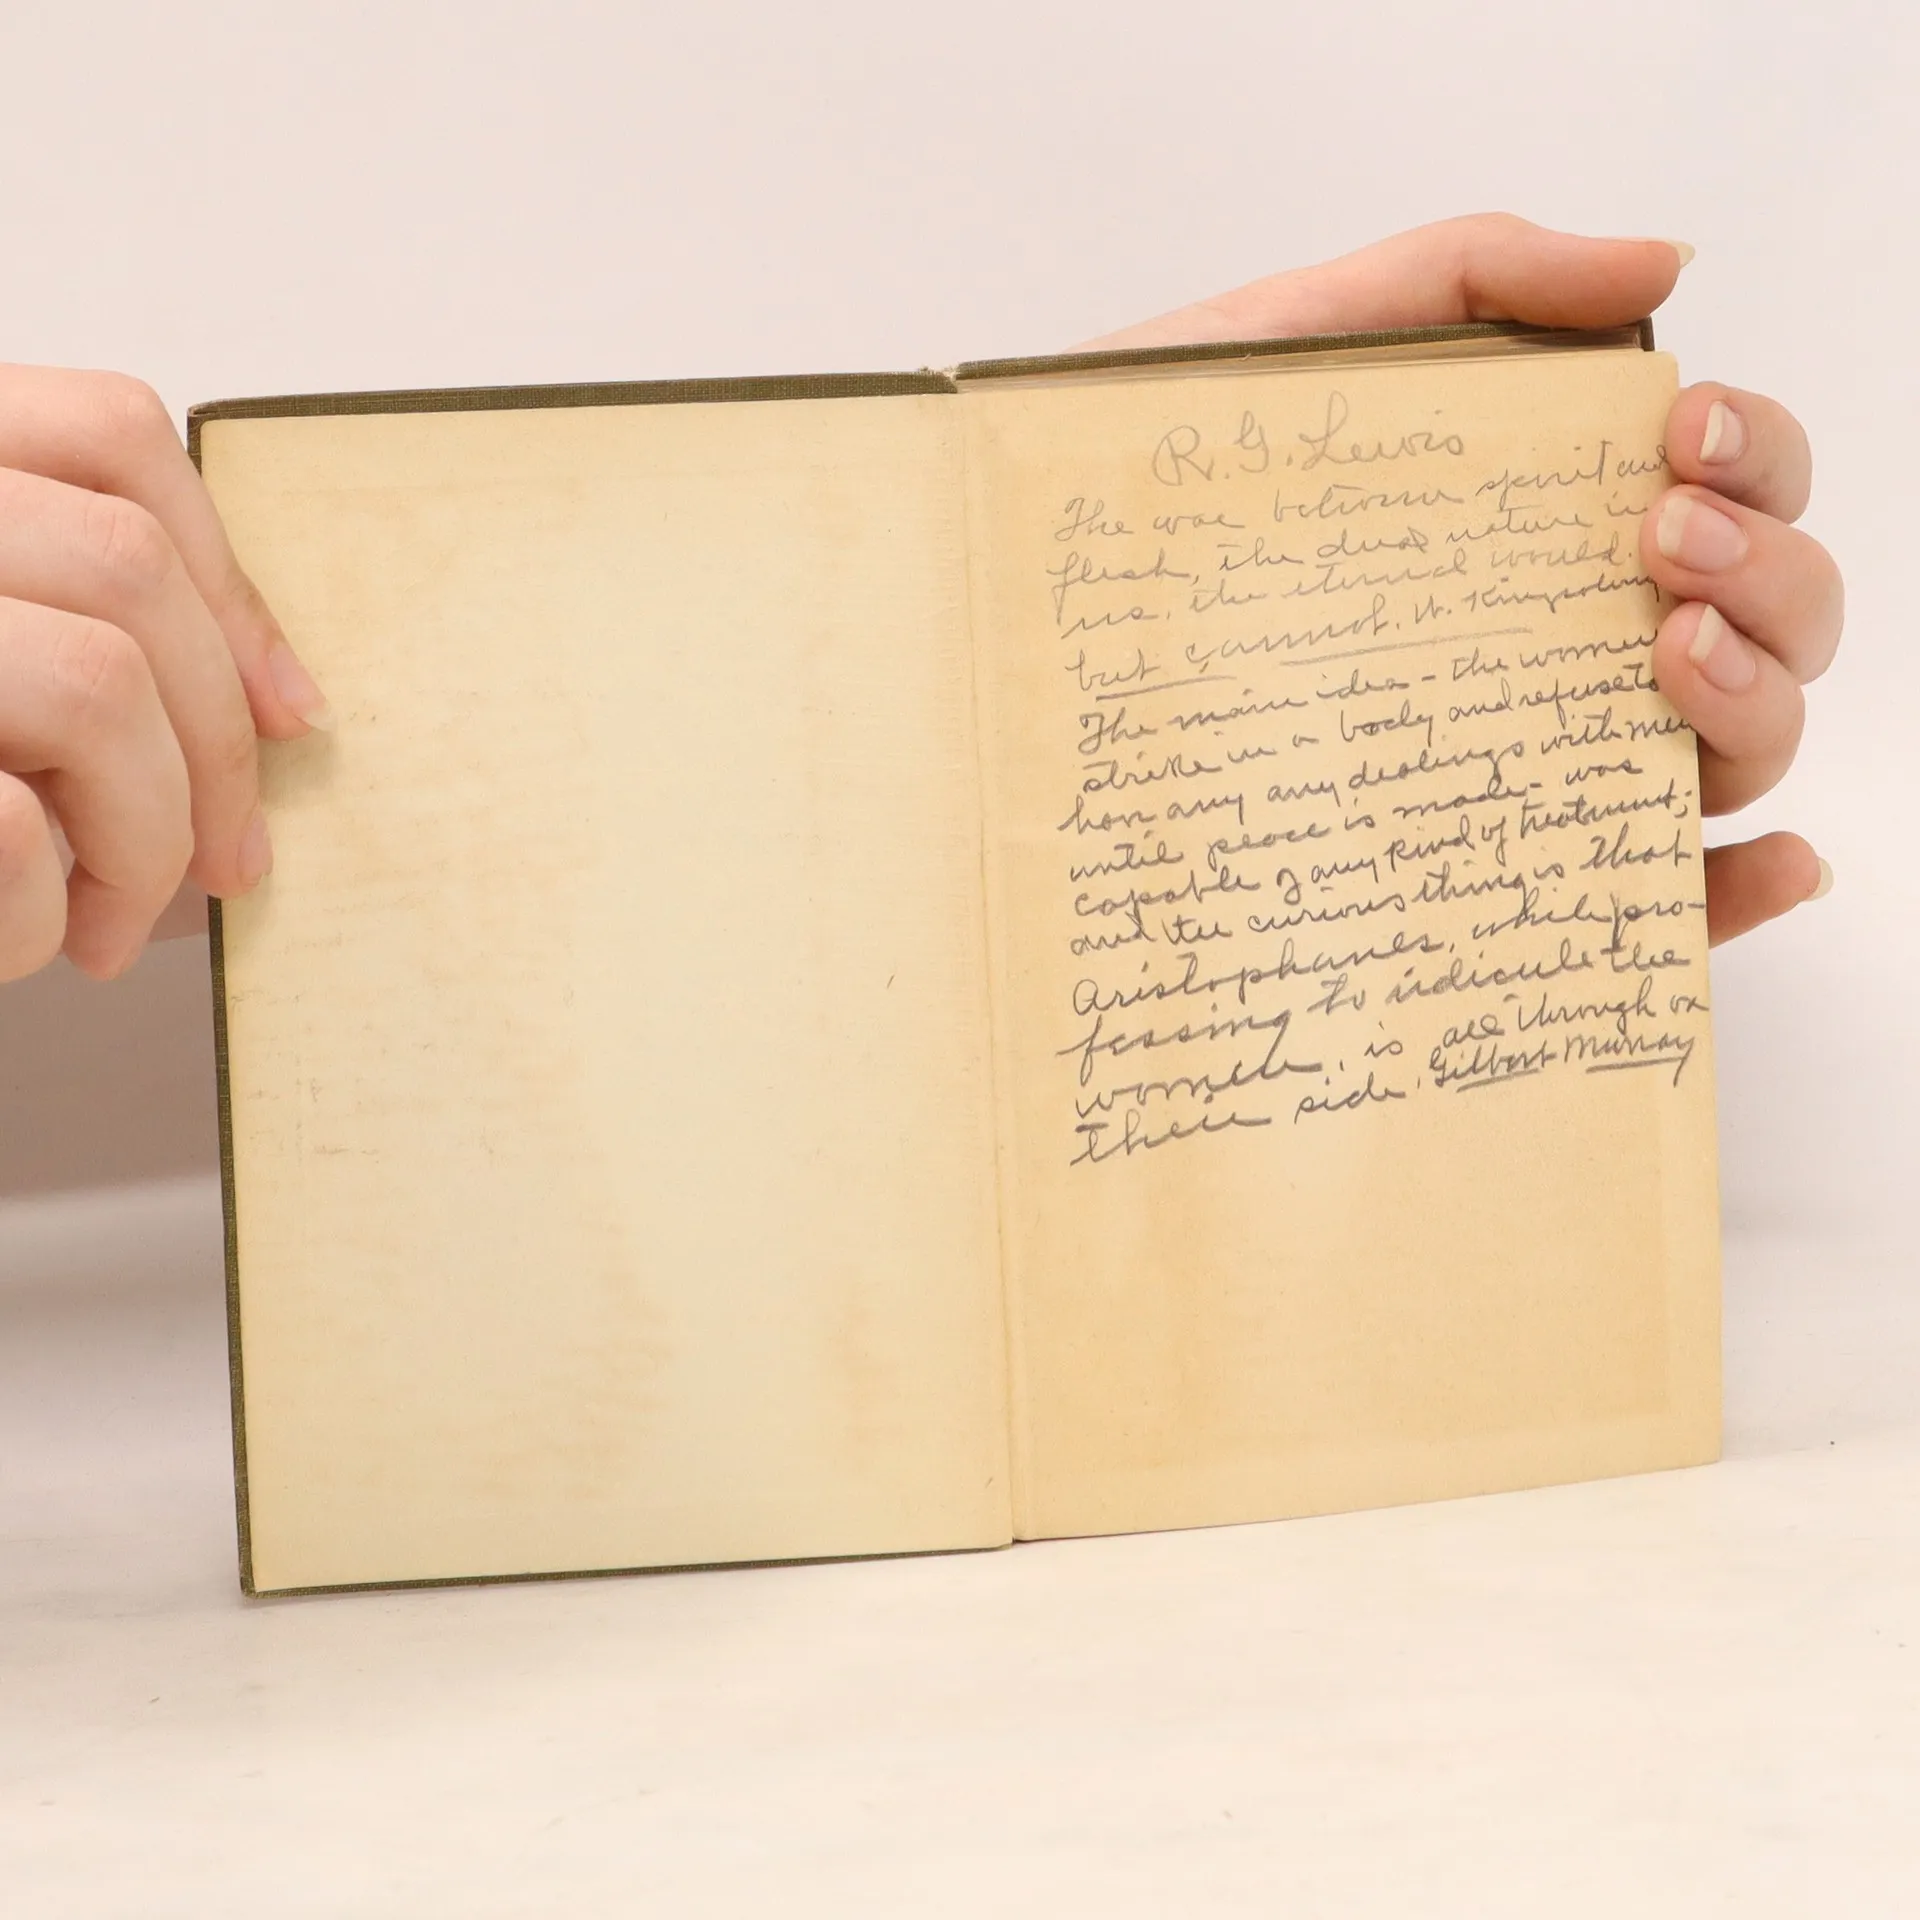 R. G. Lewis
The war between spirit and
flesh, the dual nature in
us, the eternal would
but cannot. H. Kingsolving
The main idea – the women
strike in a body and refuse to
have any any dealings with men
until peace is made – was
capable of any kind of treatment;
and the curious thing is that
Aristophanes, while pro-
fessing to ridicule the
women, is all through on
their side. Gilbert Murray